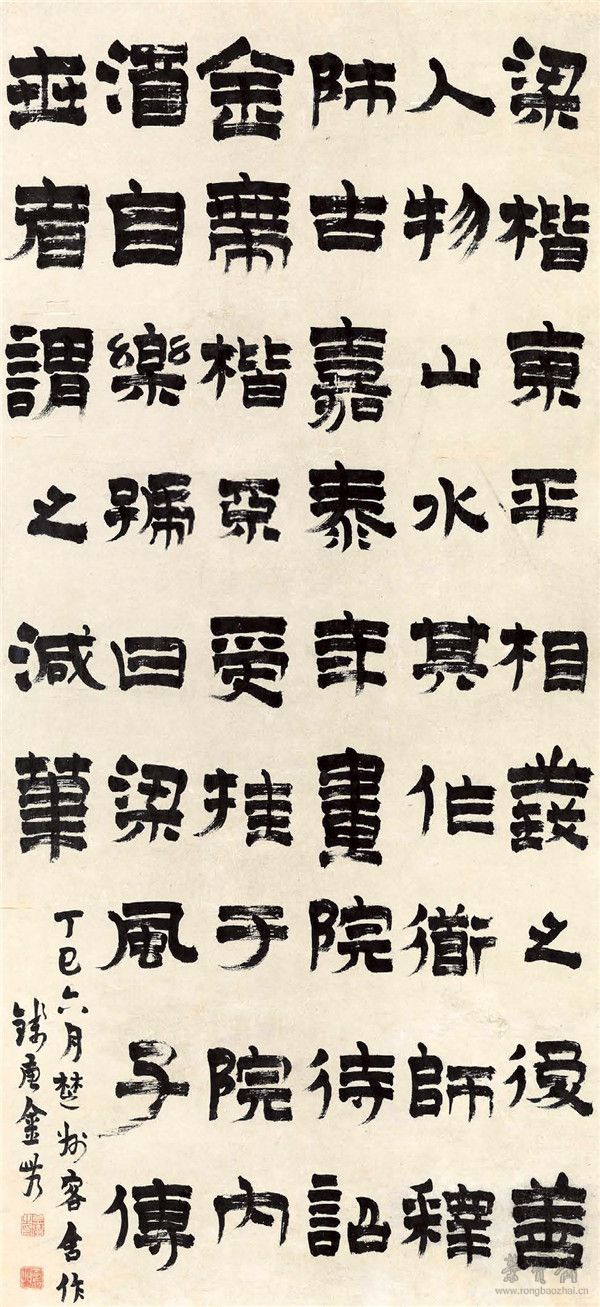 梁楷東平相羲之後善
人物山水其作衜師釋
師古嘉泰年畫院待詔
金帶楷受挂于院內
酒自樂號曰梁風子傳
世者謂之減筆
丁巳六月楚州客舍作
錢唐金農
榮寶齋
www.rongbaozhai.cn